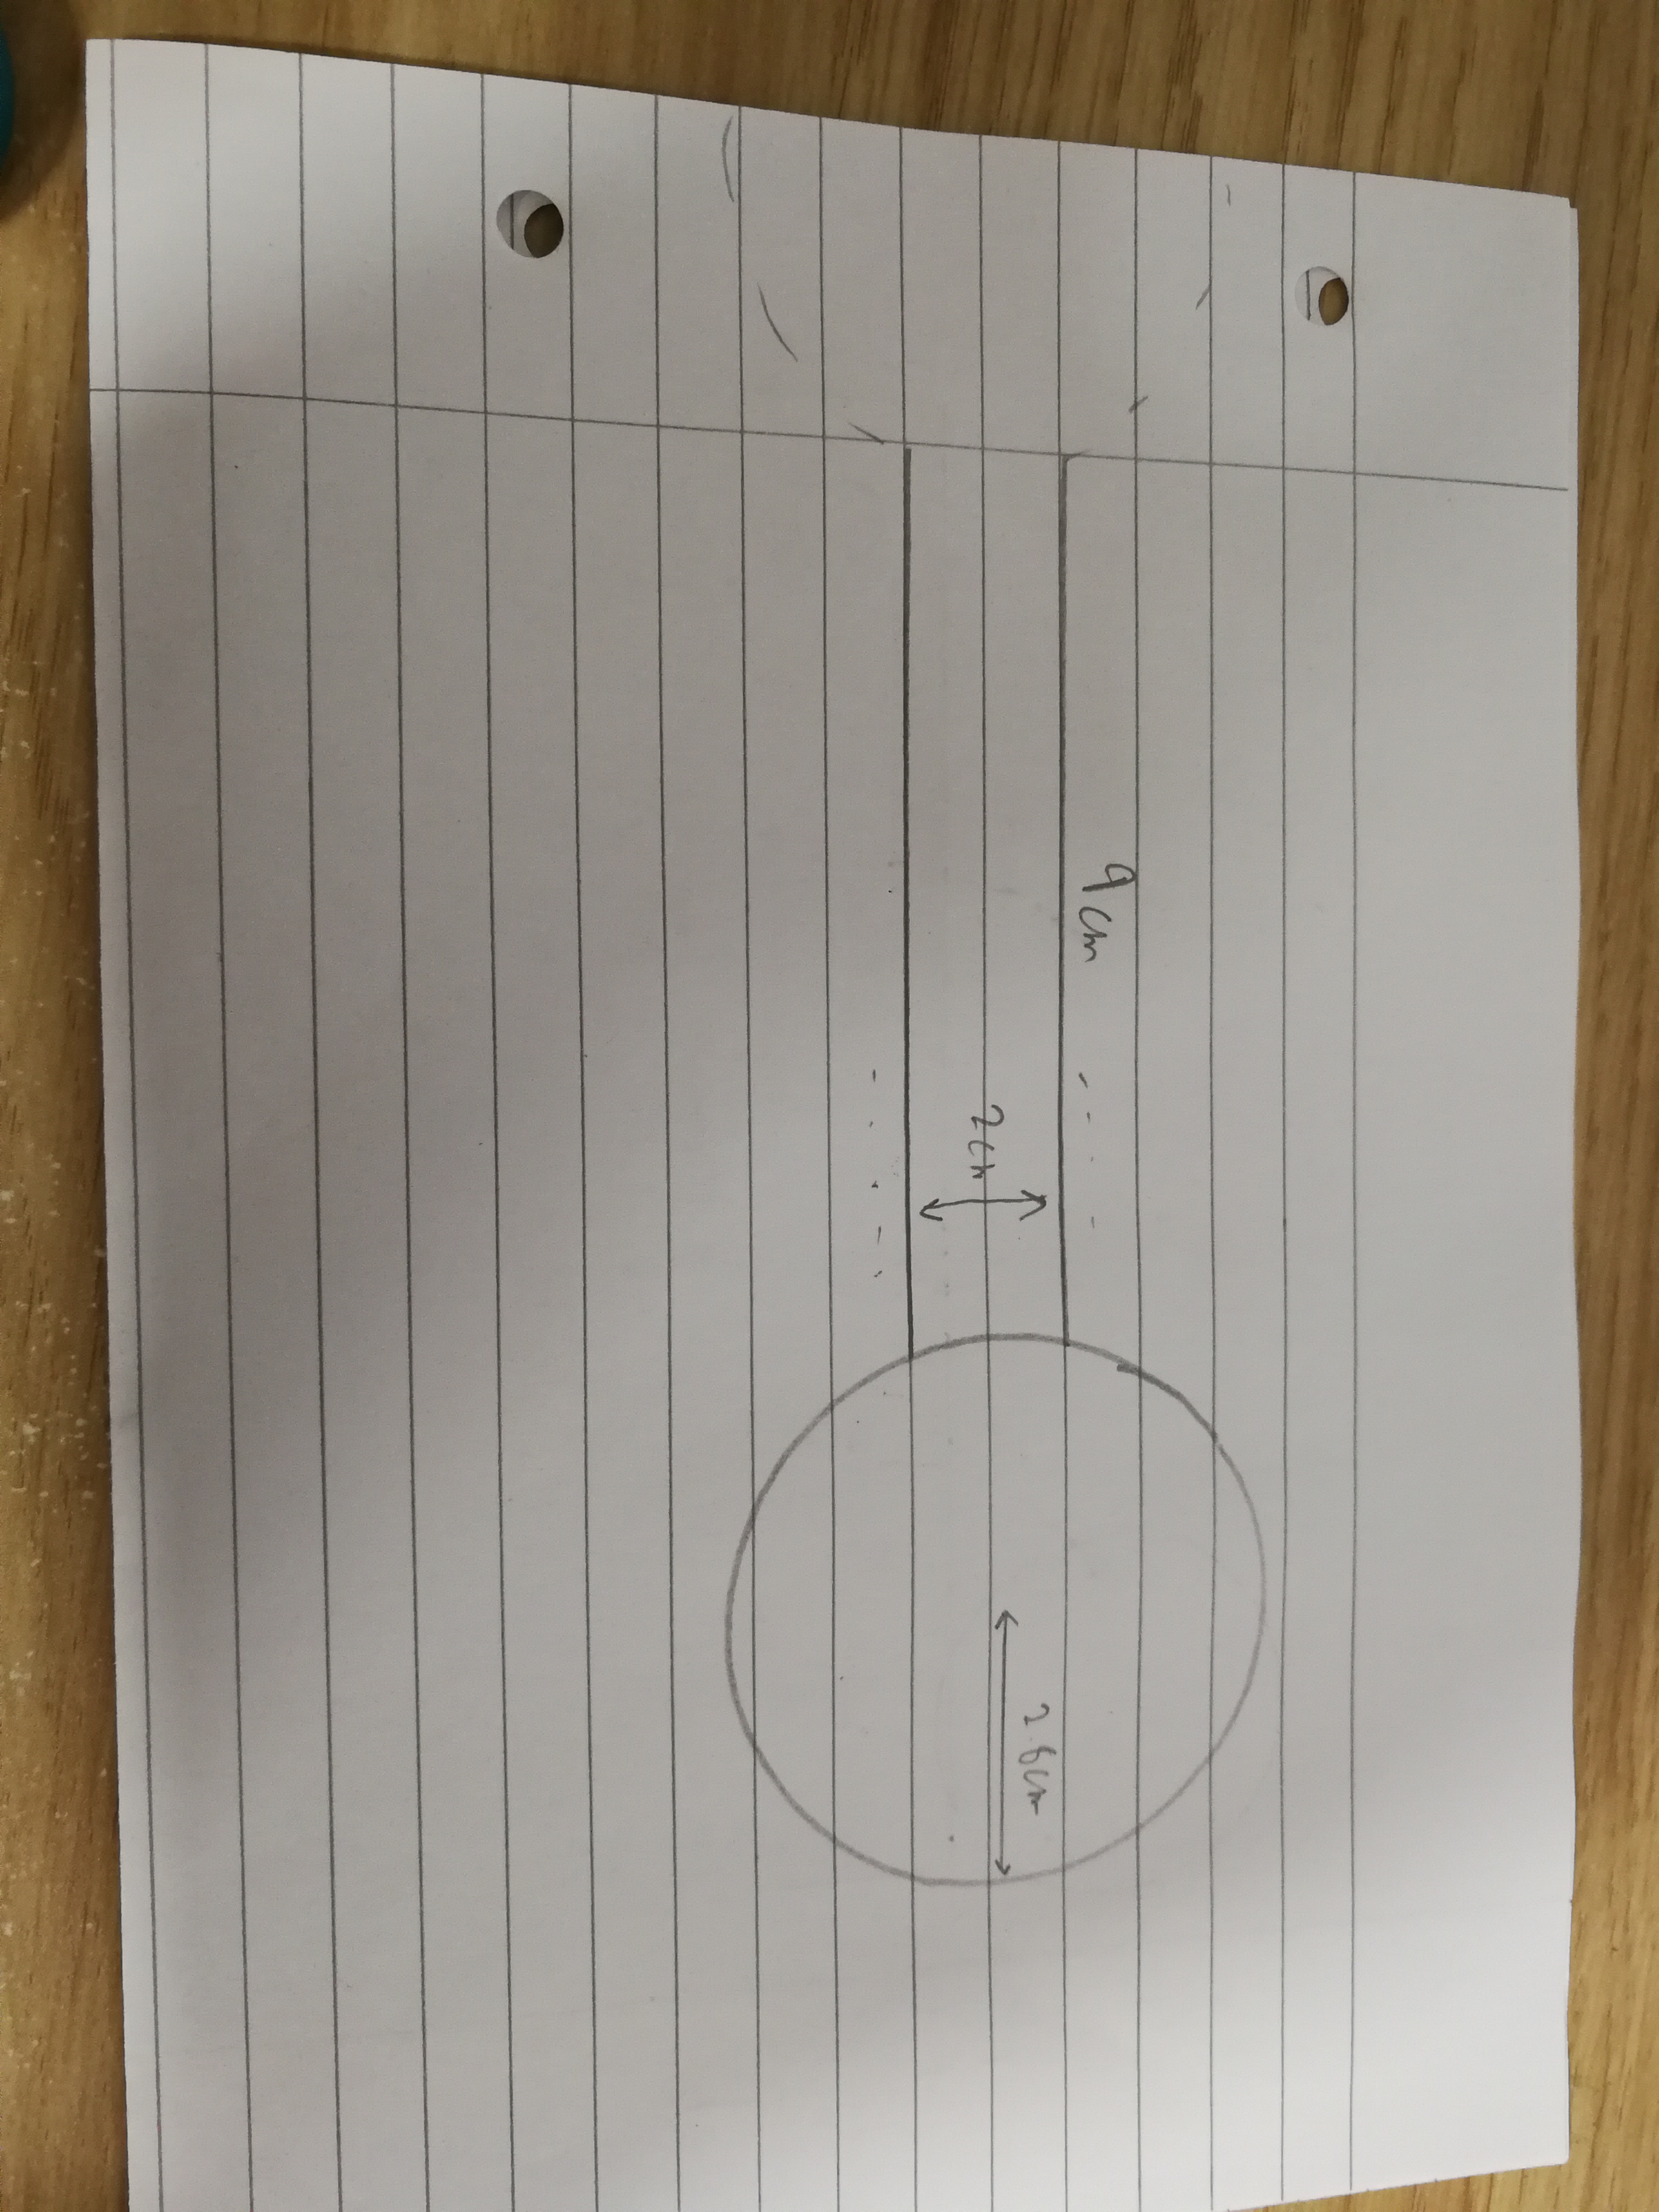 9cm
2cm
2.6cm